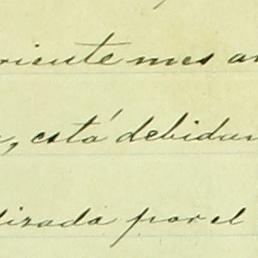 riente mes a
, está debidam
lizada por el